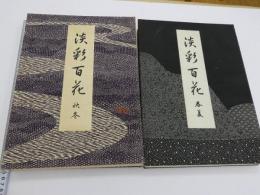 淡彩百花
秋冬
淡彩百花
春夏